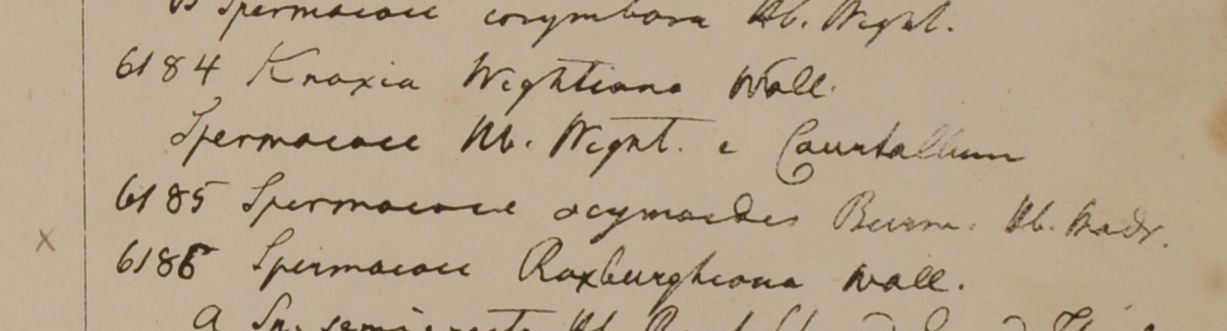 B Spermacoce corymbosa Hb. Wight.
6184 Knoxia Wightiana Wall.
Spermacoce Hb. Wight. e Courtallum
6185 Spermacoce ocymoides Burm. Hb. Madr.
x
6186 Spermacoce Roxburghiana Wall.
a Sp. semierecta Hb. Roxb.